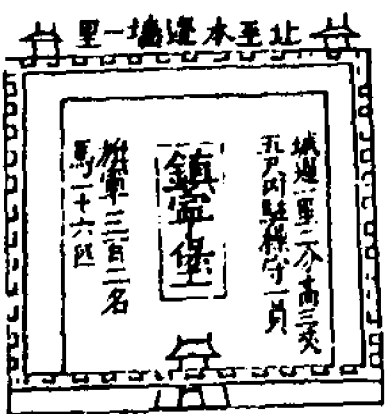 北至本邊墻一里
城週一里二分高三丈
五尺內駐操守一員
鎮寧堡
旗軍三百二名
馬一十六匹